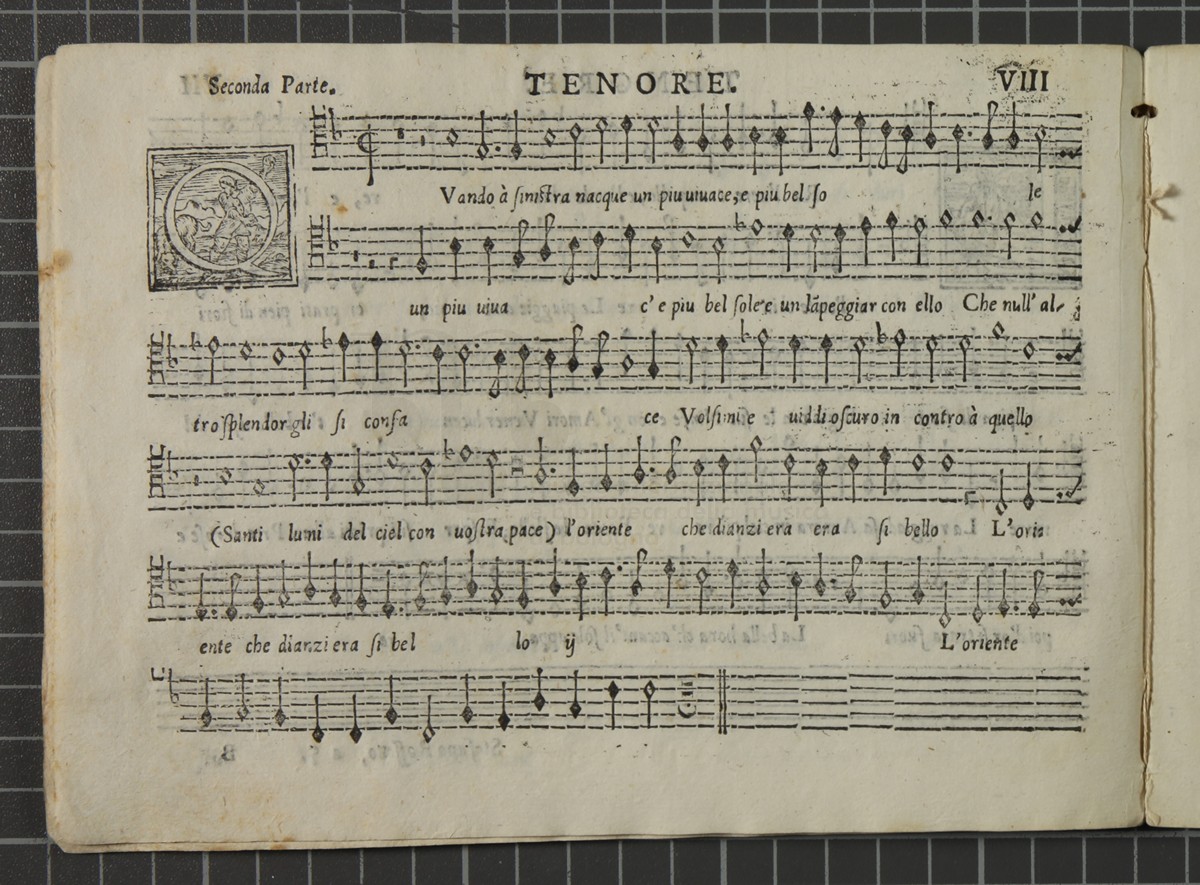 Seconda Parte. TENORE. VIII
QVando à sinistra nacque un piu uiuace, e piu bel so le
un piu uiua c' e piu bel sole e un lãpeggiar con ello Che null' al-
tro splendor gli si confa ce Volsimi e uiddi oscuro in contro à quello
(Santi lumi del ciel con uostra pace) l'oriente che dianzi era era si bello L'ori
ente che dianzi era si bel lo ij L'oriente